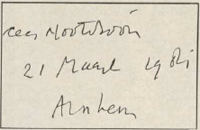 Cees Nooteboom
21 Maart 1981
Arnhem